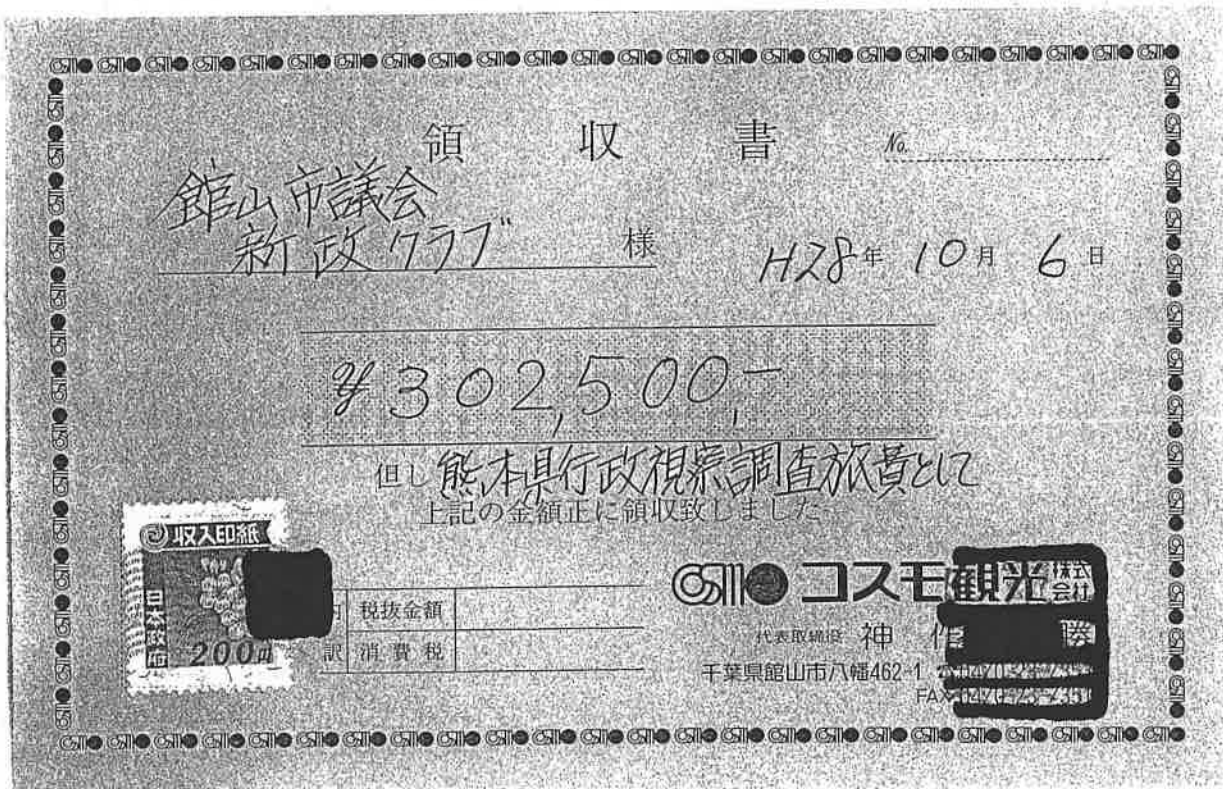 領収書
No.
館山市議会
新政クラブ 様
H28年 10月 6日
¥302,500,-
但し 熊本県行政視察調査旅費として
上記の金額正に領収致しました
収入印紙
日本政府
200円
税抜金額
訳 消費税
コスモ観光 株式会社
代表取締役 神作 勝
千葉県館山市八幡462-1
FAX